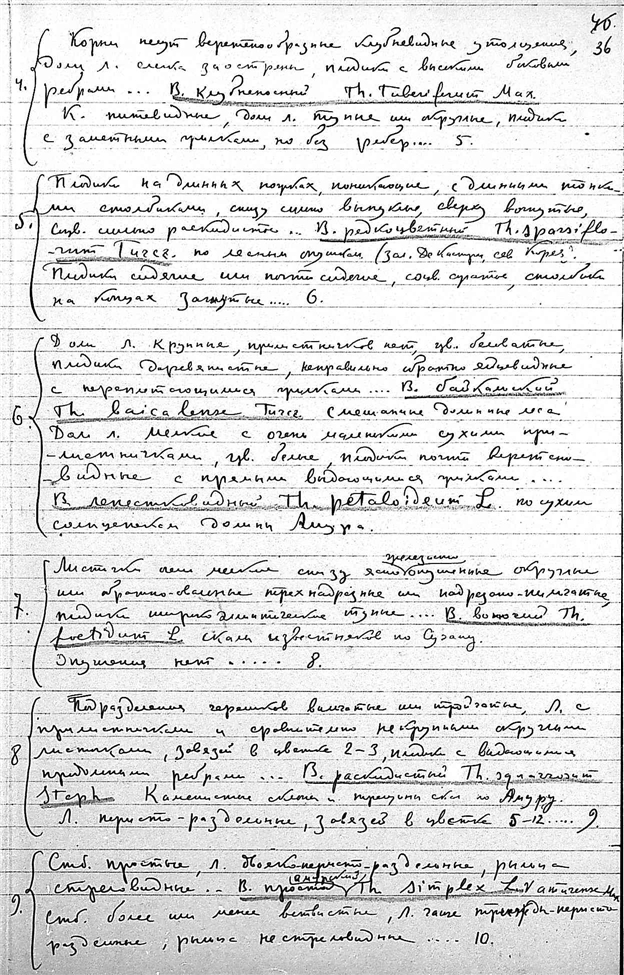 46.
36
Корни несут веретенообразные клубневидные утолщения,
4. Доли л. слегка заострены, плодики с высокими боковыми
ребрами ... В. клубненосный Th. Tuberiferum Max.
К. нитевидные, доли л. тупые или округлые, плодики
с заметными жилками, но без ребер.... 5.
Плодики на длинных ножках, поникающие, с длинными тонки-
ми столбиками, снизу сильно выпуклые сверху вогнутые,
5. соцв. сильно раскидистое ... В. редкоцветный Th. sparsiflo-
-rum Turcz. по лесным опушкам (зал. Де Кастри, сев. Корея).
Плодики сидячие или почти сидячие, соцв. сжатые, столбики
на концах загнутые ..... 6.
Доли л. крупные, прилистничков нет, цв. беловатые,
плодики деревянистые, неправильно обратно яйцевидные
с переплетающимися жилками .... В. байкальский
6. Th baicalense Turcz смешанные долинные леса
Доли л. мелкие с очень маленькими сухими при-
-листничками, цв. белые плодики почти веретено-
видные с прямыми выдающимися жилками ....
В лепестковидный Th. petaloideum L. по сухим
солнцепекам долины Амура.
Листочки очень мелкие снизу железисто опушенные округлые
или обратно-овальные трехнадрезные или надрезано-пильчатые,
7. плодики широкоэллиптические тупые .... В. вонючий Th.
foetidum L. скалы известняков по Сучану.
Опушения нет ...... 8.
Подразделения черешков вильчатые или тройчатые, Л. с
прилистничками и сравнительно некрупными округлыми
8 листочками, завязей в цветке 2-3, плодики с выдающимися
продольными ребрами ... В. раскидистый Th. squarrosum
Steph Каменистые склоны и трещины скал по Амуру.
Л. перисто-раздельные, завязей в цветке 5-12 ..... 9.
Стб. простые, л. двояко-перисто-раздельные, рыльца
стреловидные .. В. простой (амурский) Th simplex L. v amurense Max
9. Стб. более или менее ветвистые, л. чаще трижды-перисто
раздельные, рыльца нестреловидные .... 10.